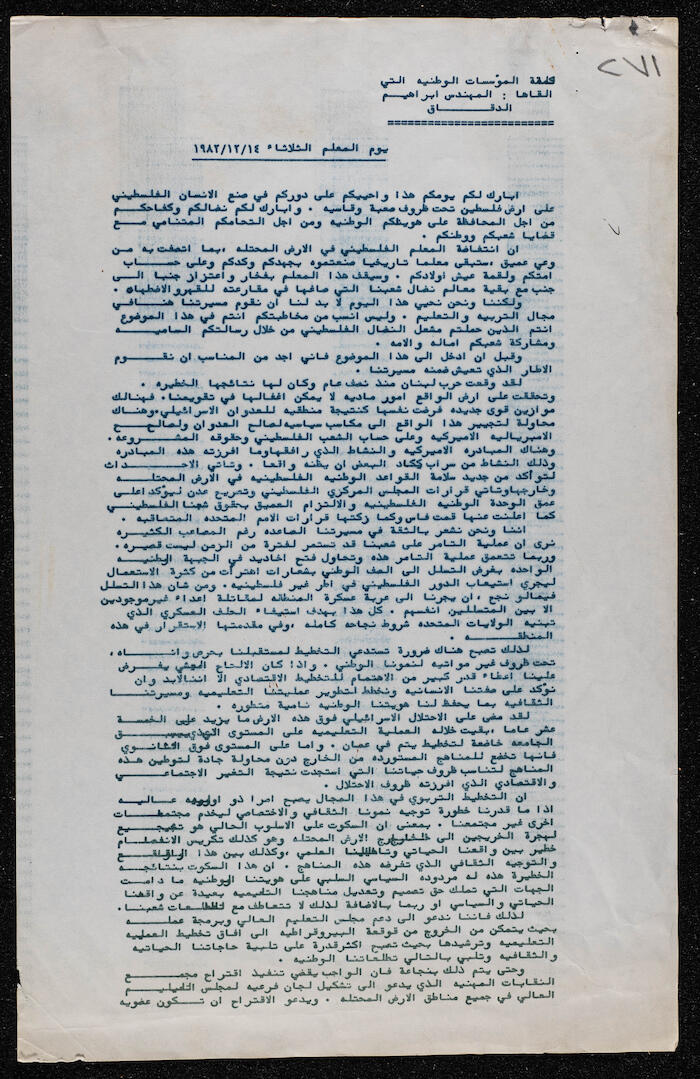 ٢٧١
كلمة المؤسسات الوطنيه التي
القاها : المهندس ابراهيم
الدقاق
يوم المعلم الثلاثاء ١٩٨٢/١٢/١٤
ابارك لكم يومكم هذا واحييكم على دوركم في صنع الانسان الفلسطيني
على ارض فلسطين تحت ظروف صعبة وقاسيه . وابارك لكم نضالكم وكفاحكم
من اجل المحافظة على هويتكم الوطنيه ومن اجل التحامكم المتنامي مع
قضايا شعبكم ووطنكم .
ان انتفاضة المعلم الفلسطيني في الارض المحتله ،بما اتصفت به من
وعي عميق ،ستبقى معلما تاريخيا صنعتموه بجهدكم وكدكم وعلى حساب
امتكم ولقمة عيش اولادكم . وسيقف هذا المعلم بفخار واعتزاز جنبا الى
جنب مع بقية معالم نضال شعبنا التي صاغها في مقارعته للقهر والاضطهاد .
ولكننا ونحن نحيي هذا اليوم لا بد لنا ان نقوم مسيرتنا هنا في
مجال التربيه والتعليم . وليس انسب من مخاطبتكم انتم في هذا الموضوع
انتم الذين حملتم مشعل النضال الفلسطيني من خلال رسالتكم الساميه
ومشاركة شعبكم اماله والامه .
وقبل ان ادخل الى هذا الموضوع فاني اجد من المناسب ان نقوم
الاطار الذي تعيش ضمنه مسيرتنا .
لقد وقعت حرب لبنان منذ نصف عام وكان لها نتائجها الخطيره .
وتحققت على ارض الواقع امور ماديه لا يمكن اغفالها في تقويمنا. فهنالك
موازين قوى جديده فرضت نفسها كنتيجة منطقيه للعدوان الاسرائيلي،وهناك
محاولة لتجيير هذا الواقع الى مكاسب سياسيه لصالح العدوان ولصالح
الامبرياليه الاميركيه وعلى حساب الشعب الفلسطيني وحقوقه المشروعه.
وهناك المبادره الاميركيه والنشاط الذي رافقها وما افرزته هذه المبادره
وذلك النشاط من سراب وكاد البعض ان يظنه واقعا . وتاتي الاحداث
لتؤكد من جديد سلامة القواعد الوطنيه الفلسطينيه في الارض المحتله
وخارجها وتاتي قرارات المجلس المركزي الفلسطيني وتصريح عدن ليؤكد اعلى
عمق الوحدة الوطنيه الفلسطينيه والالتزام العميق بحقوق شعبنا الفلسطيني
كما اعلنت عنها قمة فاس وكما زكتها قرارات الامم المتحده المتعاقبه .
اننا ونحن نشعر بالثقة في مسيرتنا الصاعده رغم المصاعب الكثيره
نرى ان عملية التامر على شعبنا قد تستمر لفترة من الزمن ليست قصيره.
وربما تتعمق عملية التامر هذه وتحاول فتح اخاديد في الجبهة الوطنيه
الواحده بغرض التسلل الى الصف الوطني بشعارات اهترات من كثرة الاستعمال
ليجري استيعاب الدور الفلسطيني في اطر غير فلسطينيه . ومن شان هذا التسلل
فيما لو نجح ،ان يجرنا الى عربة عسكرة المنطقه لمقاتلة اعداء غير موجودين
الا بين المتسللين انفسهم . كل هذا بهدف استيفاء الحلف العسكري الذي
تبنيه الولايات المتحده شروط نجاحه كامله ،وفي مقدمتها الاستقرار في هذه
المنطقه .
لذلك تصبح هناك ضرورة تستدعي التخطيط لمستقبلنا بحرص واناه ،
تحت ظروف غير مواتيه لنمونا الوطني . واذا كان الالحاح يفرض
علينا اعطاء قدر كبير من الاهتمام للتخطيط الاقتصادي الا اننا لابد وان
نؤكد على صفتنا الانسانيه ونخطط لتطوير عمليتنا التعليميه ومسيرتنا
الثقافيه بما يحفظ لنا هويتنا الوطنيه نامية متطوره .
لقد مضى على الاحتلال الاسرائيلي فوق هذه الارض ما يزيد على الخمسة
عشر عاما ،بقيت خلاله العملية التعليميه على المستوى الذي يسبق
الجامعه خاضعة لتخطيط يتم في عمان . واما على المستوى فوق الثانوي
فانها تخضع للمناهج المستورده من الخارج دون محاولة جادة لتوطين هذه
المناهج لتناسب ظروف حياتنا التي استجدت نتيجة التغير الاجتماعي
والاقتصادي الذي افرزته ظروف الاحتلال .
ان التخطيط التربوي في هذا المجال يصبح امرا ذو اولويه عاليه
اذا ما قدرنا خطورة توجيه نمونا الثقافي والاختصاصي ليخدم مجتمعات
اخرى غير مجتمعنا . بمعنى ان السكوت على الاسلوب الحالي هو تجيير
لهجرة الخريجين الى خارج الارض المحتله وهو كذلك تكريس الانفصام
خطير بين واقعنا الحياتي وتاهيلنا العلمي ،وكذلك بين هذا الواقع
والتوجيه الثقافي الذي تفرضه هذه المناهج . ان هذا السكوت بنتائجه
الخطيرة هذه له مردوده السياسي السلبي على هويتنا الوطنيه ما دامت
الجهات التي تملك حق تصميم وتعديل مناهجنا التعليميه بعيدة عن واقعنا
الحياتي والسياسي او ربما بالاضافة لذلك لا تتعاطف مع تطلعات شعبنا.
لذلك فاننا ندعو الى دعم مجلس التعليم العالي وبرمجة عمله
بحيث يتمكن من الخروج من قوقعة البيروقراطيه الى افاق تخطيط العمليه
التعليميه وترشيدها بحيث تصبح اكثر قدرة على تلبية حاجاتنا الحياتيه
والثقافيه وتلبي بالتالي تطلعاتنا الوطنيه .
وحتى يتم ذلك بنجاعة فان الواجب يقضي تنفيذ اقتراح مجمع
النقابات المهنيه الذي يدعو الى تشكيل لجان فرعيه لمجلس التعليم
العالي في جميع مناطق الارض المحتله . ويدعو الاقتراح ان تكون عضويه